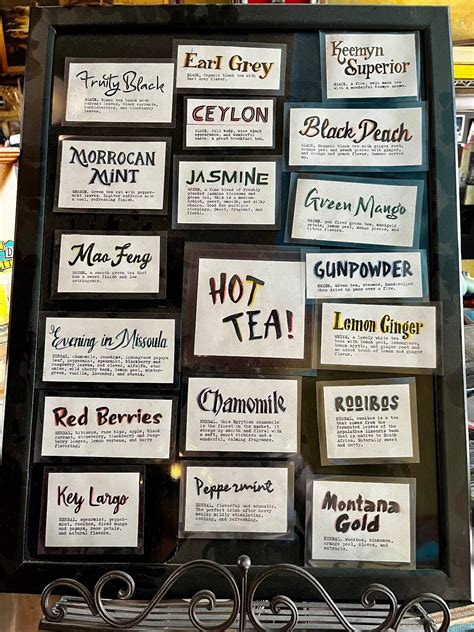 Fruity Black
BLACK, black tea base with
currant leaves, black currants,
and blueberry
leaves.
Earl Grey
BLACK, Organic black tea with
Earl Grey flavor.
Keemyn
Superior
BLACK, a fine, well made tea
with a wonderful Keemyn aroma.
CEYLON
BLACK, Full body, nice black
tea. A great breakfast tea.
Black Peach
BLACK, Organic black tea with ginger root,
orange peel and peach pieces with ginger,
and orange and peach flavor.
MORROCAN
MINT
GREEN, Green tea cut with pepper-
mint leaves. Lighter caffeine with
a cool, refreshing finish.
JASMINE
GREEN, a fine blend of freshly
plucked jasmine blossoms and
green tea, this is a medium
bodied, sweet, smooth, and silky
choice. Good for multiple
steepings. Sweet, fragrant, and
floral.
Green Mango
GREEN, pan fired green tea, marigold
petals, lemon peel, mango pieces, and
citrus.
Mao Feng
GREEN, a smooth green tea that
has a sweet finish and low
astringency.
HOT
TEA!
GUNPOWDER
GREEN, green tea, steamed, hand-rolled
then dried in pans over a fire.
Evening in Missoula
HERBAL, chamomile, rosehips, lemongrass papaya
leaf, peppermint, spearmint, blackberry and
raspberry leaves, red clover, alfalfa, star
anise, wild cherry bark, lemon peel, winter-
green, vanilla, lavender, and stevia.
Lemon Ginger
WHITE, a lovely white tea
with lemon peel, lemongrass,
lemon myrtle, and ginger root and
an added touch of lemon and ginger
flavor.
Red Berries
HERBAL, hibiscus, rose hips, apple, black
currant, strawberry, blackberry and rasp-
berry leaves, lemon verbena, and berry
flavoring.
Chamomile
HERBAL, this Egyptian chamomile
is the finest on the market. It
steeps up smooth and floral with
a soft, sweet richness and a
wonderful, calming fragrance.
ROOIBOS
HERBAL, rooibos is a tea
that comes from the
fermented leaves of the
aspalathus linearis bush
that is native to South
Africa. Naturally sweet
and nutty.
Key Largo
HERBAL, spearmint, pepper-
mint, rooibos, diced mango
and papaya, rose petals,
and natural flavors.
Peppermint
HERBAL, flavorful and aromatic.
The perfect drink after heavy
meals; mildly stimulating,
cooling, and refreshing.
Montana
Gold
HERBAL, rooibos, cinnamon,
orange peel, cloves, and
extracts.